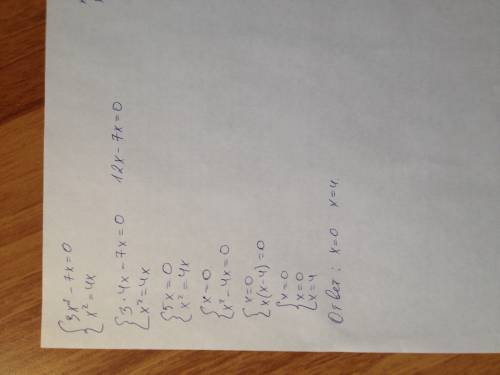 {3x² - 7x = 0
x² = 4x
{3·4x - 7x = 0   12x - 7x = 0
x² = 4x
{5x = 0
x² = 4x
{x = 0
x² - 4x = 0
{x = 0
x(x-4) = 0
{x = 0
{x = 0
x = 4
Ответ: x = 0   x = 4.